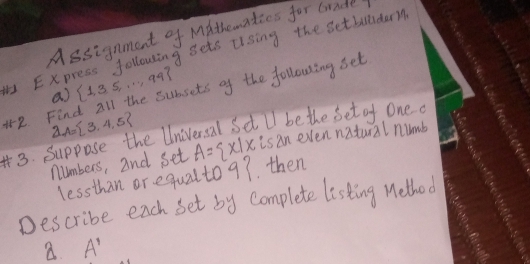 Assignment of Mathematics for Grade
#1 Express following sets Using the set builder M
a) {1,3,5,..., 99}
#2 Find all the subsets of the following set
a A={3,4,5}
#3. Suppose the Universal Set U be the set of One-
numbers, and set A={x|x is an even natural numb
less than or equal to 9}. then
Describe each set by Complete listing Method
a. A'